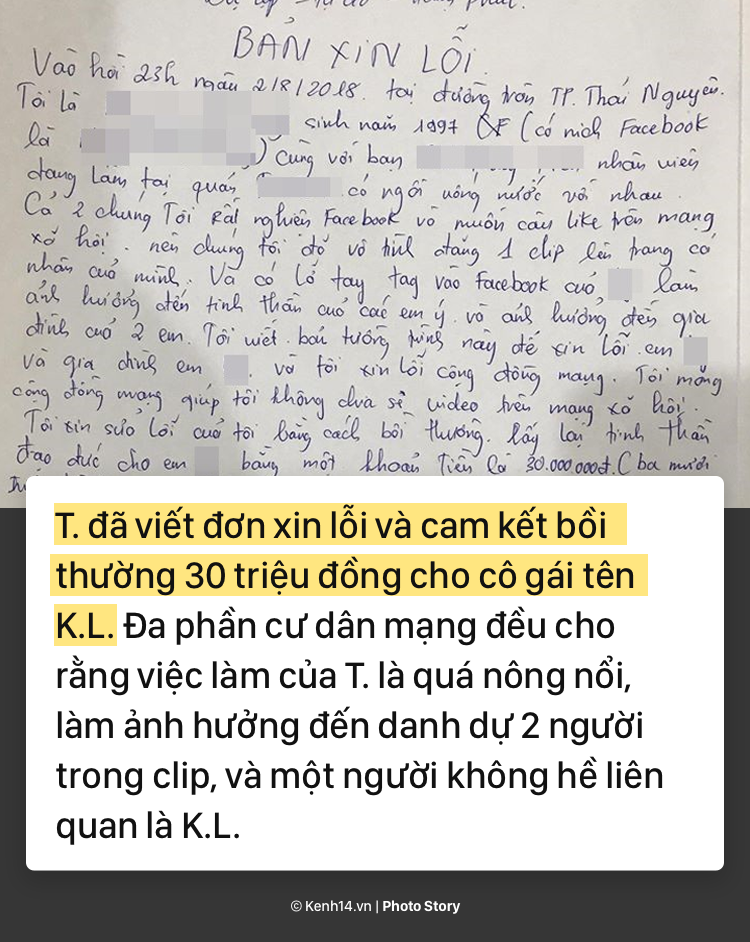 BẢN XIN LỖI
Vào hồi 23h ngày 2/8/2018. tại đường tròn TP. Thái Nguyên.
Tôi là
sinh năm 1997 (có nick Facebook
là ) cùng với bạn nhân viên
đang làm tại quán có ngồi uống nước với nhau.
Cả 2 chúng Tôi rất nghiện Facebook vô muốn câu like trên mạng
xã hội. nên chúng tôi đã vô tình đăng 1 clip lên trang cá
nhân cuả mình. Và có lỡ tay tag vào Facebook cuả làm
ảnh hưởng đến tinh thần cuả các em ý. và ảnh hưởng đến gia
đình cuả 2 em. Tôi viết bản tường trình này để xin lỗi em
và gia đình em và tôi xin lỗi cộng đồng mạng. Tôi mong
cộng đồng mạng giúp tôi không chia sẻ video trên mạng xã hội.
Tôi xin sửa lỗi cuả tôi bằng cách bồi thường. lấy lại tinh thần
đạo đức cho em bằng một khoản Tiền là 30.000.000đ. (ba mươi
T. đã viết đơn xin lỗi và cam kết bồi
thường 30 triệu đồng cho cô gái tên
K.L. Đa phần cư dân mạng đều cho
rằng việc làm của T. là quá nông nổi,
làm ảnh hưởng đến danh dự 2 người
trong clip, và một người không hề liên
quan là K.L.
© Kenh14.vn | Photo Story